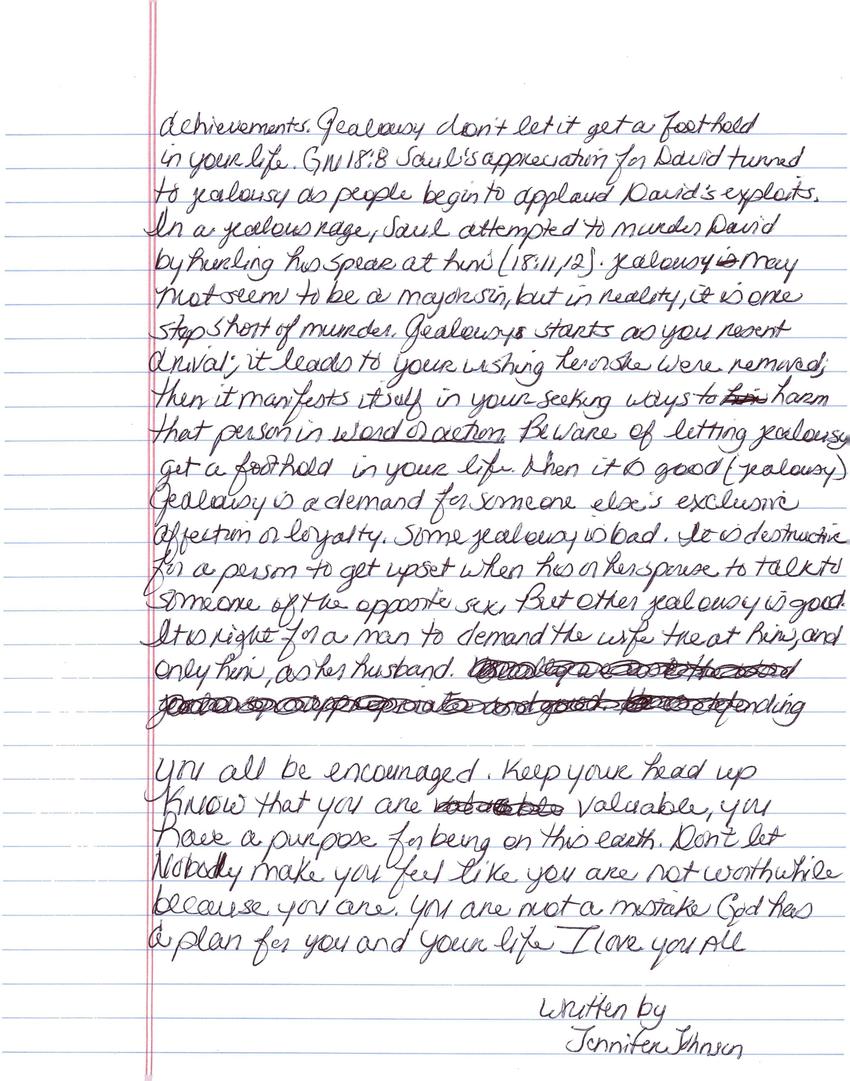 achievements. Jealousy don't let it get a foothold
in your life. GN18:8 Saul's appreciation for David turned
to jealousy as people begin to applaud David's exploits.
In a jealous rage, Saul attempted to murder David
by hurling his spear at him (18:11,12). Jealousy is may
not seem to be a major sin, but in reality, it is one
step short of murder. Jealousy starts as you resent
a rival; it leads to your wishing he or she were removed;
then it manifests itself in your seeking ways to him harm
that person in word or action. Beware of letting jealousy
get a foothold in your life. When it is good (jealousy)
Jealousy is a demand for someone else's exclusive
affection or loyalty. Some jealousy is bad. It is destructive
for a person to get upset when his or her spouse to talk to
someone of the opposite sex, But other jealousy is good.
It is right for a man to demand the wife treat him, and
only him, as her husband.
defending
you all be encouraged. Keep your head up
Know that you are valuable, you
have a purpose for being on this earth. Don't let
Nobody make you feel like you are not worthwhile
because you are. you are not a mistake God has
a plan for you and your life I love you All
Written by
Jennifer Johnson